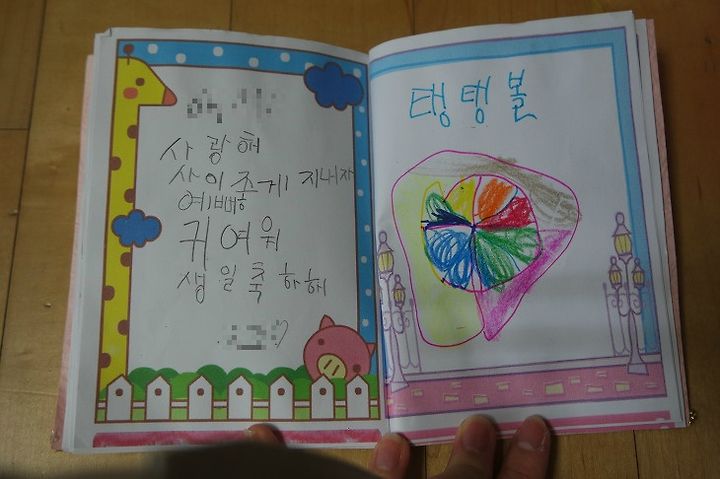 사랑해
사이좋게 지내자
예뻐
귀여워
생일축하해
탱탱볼